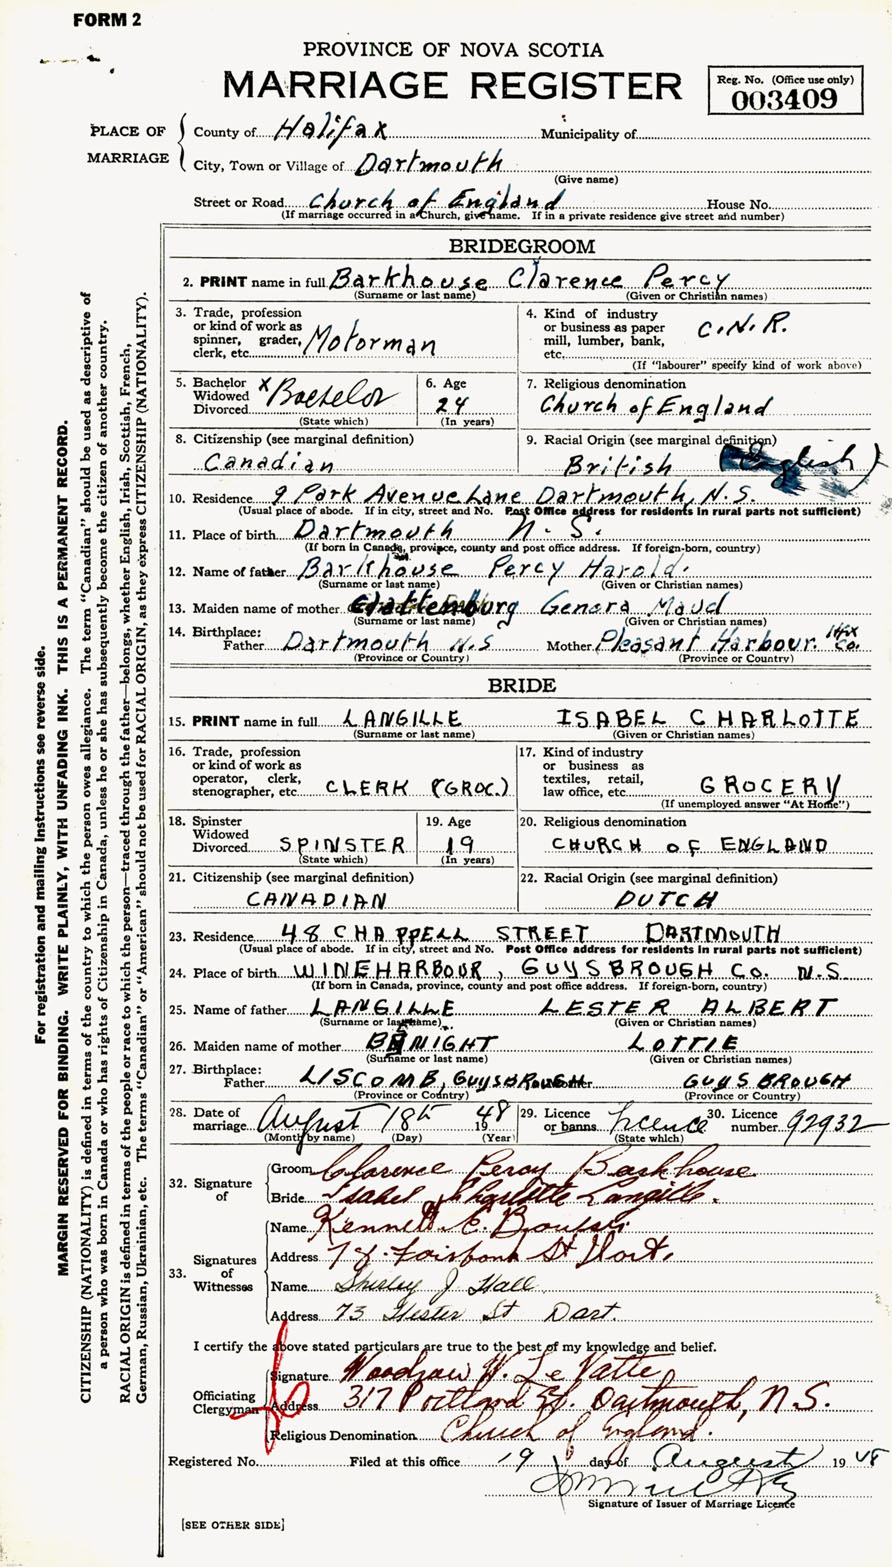 FORM 2
PROVINCE OF NOVA SCOTIA
MARRIAGE REGISTER
Reg. No. (Office use only)
003409
PLACE OF MARRIAGE
County of Halifax Municipality of
City, Town or Village of Dartmouth
(Give name)
Street or Road Church of England House No.
(If marriage occurred in a Church, give name. If in a private residence give street and number)
BRIDEGROOM
2. PRINT name in full Barkhouse Clarence Percy
(Surname or last name) (Given or Christian names)
3. Trade, profession
or kind of work as
spinner, grader,
clerk, etc. Motorman
4. Kind of industry
or business as paper
mill, lumber, bank,
etc. C.N.R.
(If "labourer" specify kind of work above)
5. Bachelor
Widowed
Divorced x Bachelor
(State which)
6. Age
24
(In years)
7. Religious denomination
Church of England
8. Citizenship (see marginal definition)
Canadian
9. Racial Origin (see marginal definition)
British (English)
10. Residence 9 Park Avenue Lane Dartmouth, N.S.
(Usual place of abode. If in city, street and No. Post Office address for residents in rural parts not sufficient)
11. Place of birth Dartmouth N.S.
(If born in Canada, province, county and post office address. If foreign-born, country)
12. Name of father Barkhouse Percy Harold.
(Surname or last name) (Given or Christian names)
13. Maiden name of mother Genora Maud
(Surname or last name) (Given or Christian names)
14. Birthplace:
Father Dartmouth N.S Mother Pleasant Harbour. Hfx Co.
(Province or Country) (Province or Country)
BRIDE
15. PRINT name in full LANGILLE ISABEL CHARLOTTE
(Surname or last name) (Given or Christian names)
16. Trade, profession
or kind of work as
operator, clerk,
stenographer, etc. CLERK (GROC.)
17. Kind of industry
or business as
textiles, retail,
law office, etc. GROCERY
(If unemployed answer "At Home")
18. Spinster
Widowed
Divorced SPINSTER
(State which)
19. Age
19
(In years)
20. Religious denomination
CHURCH OF ENGLAND
21. Citizenship (see marginal definition)
CANADIAN
22. Racial Origin (see marginal definition)
DUTCH
23. Residence 48 CHAPPELL STREET DARTMOUTH
(Usual place of abode. If in city, street and No. Post Office address for residents in rural parts not sufficient)
24. Place of birth WINEHARBOUR, GUYSBROUGH CO. N.S.
(If born in Canada, province, county and post office address. If foreign-born, country)
25. Name of father LANGILLE LESTER ALBERT
(Surname or last name) (Given or Christian names)
26. Maiden name of mother LOTTIE
(Surname or last name) (Given or Christian names)
27. Birthplace:
Father LISCOMB, GUYSBROUGH GUYSBROUGH
(Province or Country) (Province or Country)
28. Date of
marriage August 18th 1948
(Month by name) (Day) (Year)
29. Licence
or banns licence
(State which)
30. Licence
number 92932
32. Signature of
Groom Clarence Percy Barkhouse
Bride Isabel Charlotte Langille.
33. Signatures of Witnesses
Name Kenneth E.
Address 78 Fairbank St Dart.
Name Shirley J Hall
Address 73 Hester St Dart.
I certify the above stated particulars are true to the best of my knowledge and belief.
Officiating Clergyman
Signature Woodrow W. Le Vatte
Address 317 Portland St. Dartmouth, N.S.
Religious Denomination Church of England.
Registered No. Filed at this office 19 day of August 1948
Signature of Issuer of Marriage Licence
[SEE OTHER SIDE]
For registration and mailing instructions see reverse side.
MARGIN RESERVED FOR BINDING. WRITE PLAINLY, WITH UNFADING INK. THIS IS A PERMANENT RECORD.
CITIZENSHIP (NATIONALITY) is defined in terms of the country to which the person owes allegiance. The term "Canadian" should be used as descriptive of
a person who was born in Canada or who has rights of Citizenship in Canada, unless he or she has subsequently become the citizen of another country.
RACIAL ORIGIN is defined in terms of the people or race to which the person—traced through the father—belongs, whether English, Irish, Scottish, French,
German, Russian, Ukrainian, etc. The terms "Canadian" or "American" should not be used for RACIAL ORIGIN, as they express CITIZENSHIP (NATIONALITY).